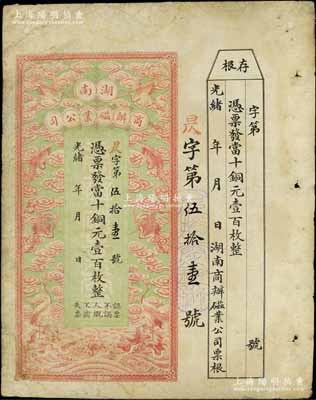 上海陽明拍賣
存根
字第 號
憑票發當十銅元壹百枚整
光緒 年 月 日湖南商辦磁業公司票根
字第伍拾壹號
湖南
商辦磁業公司
字第伍拾壹號
憑票發當十銅元壹百枚整
光緒 年 月 日
認票不認人
上海陽明拍賣